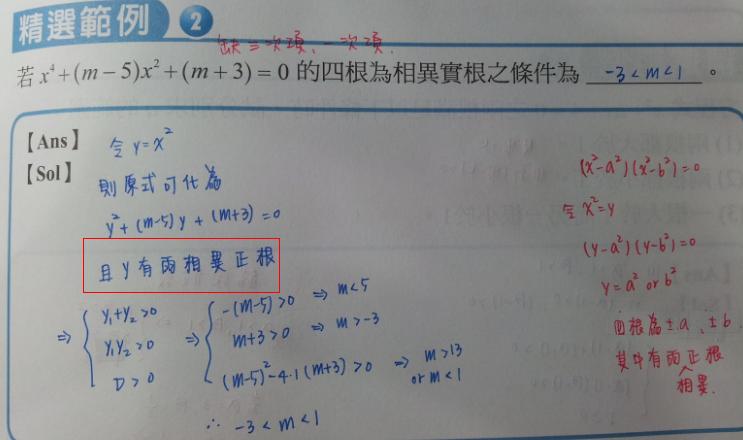 精選範例 2
缺三次項、一次項.
若 x⁴+(m−5)x²+(m+3)=0 的四根為相異實根之條件為 -3<m<1 。
【Ans】
令 y=x²
【Sol】
則原式可化為
y²+(m-5)y+(m+3)=0
且 y 有兩相異正根
⇒ { y₁+y₂>0
y₁y₂>0
D>0
⇒ { -(m-5)>0 ⇒ m<5
m+3>0 ⇒ m>-3
(m-5)²-4·1(m+3)>0 ⇒ m>13
or m<1
∴ -3<m<1
(x²-a²)(x²-b²)=0
令 x²=y
(y-a²)(y-b²)=0
y=a² or b²
四根為±a、±b
其中有兩正根
相異.